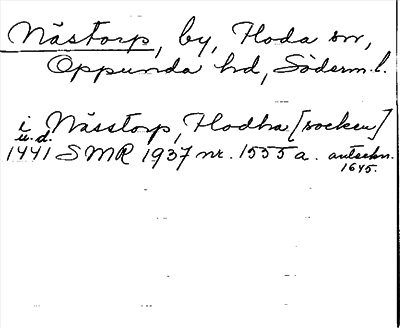 Nästorp, by, Floda sn,
Oppunda hd, Söderm.l.
i Nässtorp, Flodha [socken]
u.d.
1441 SMR 1937 nr. 1555 a. anteckn.
1645.